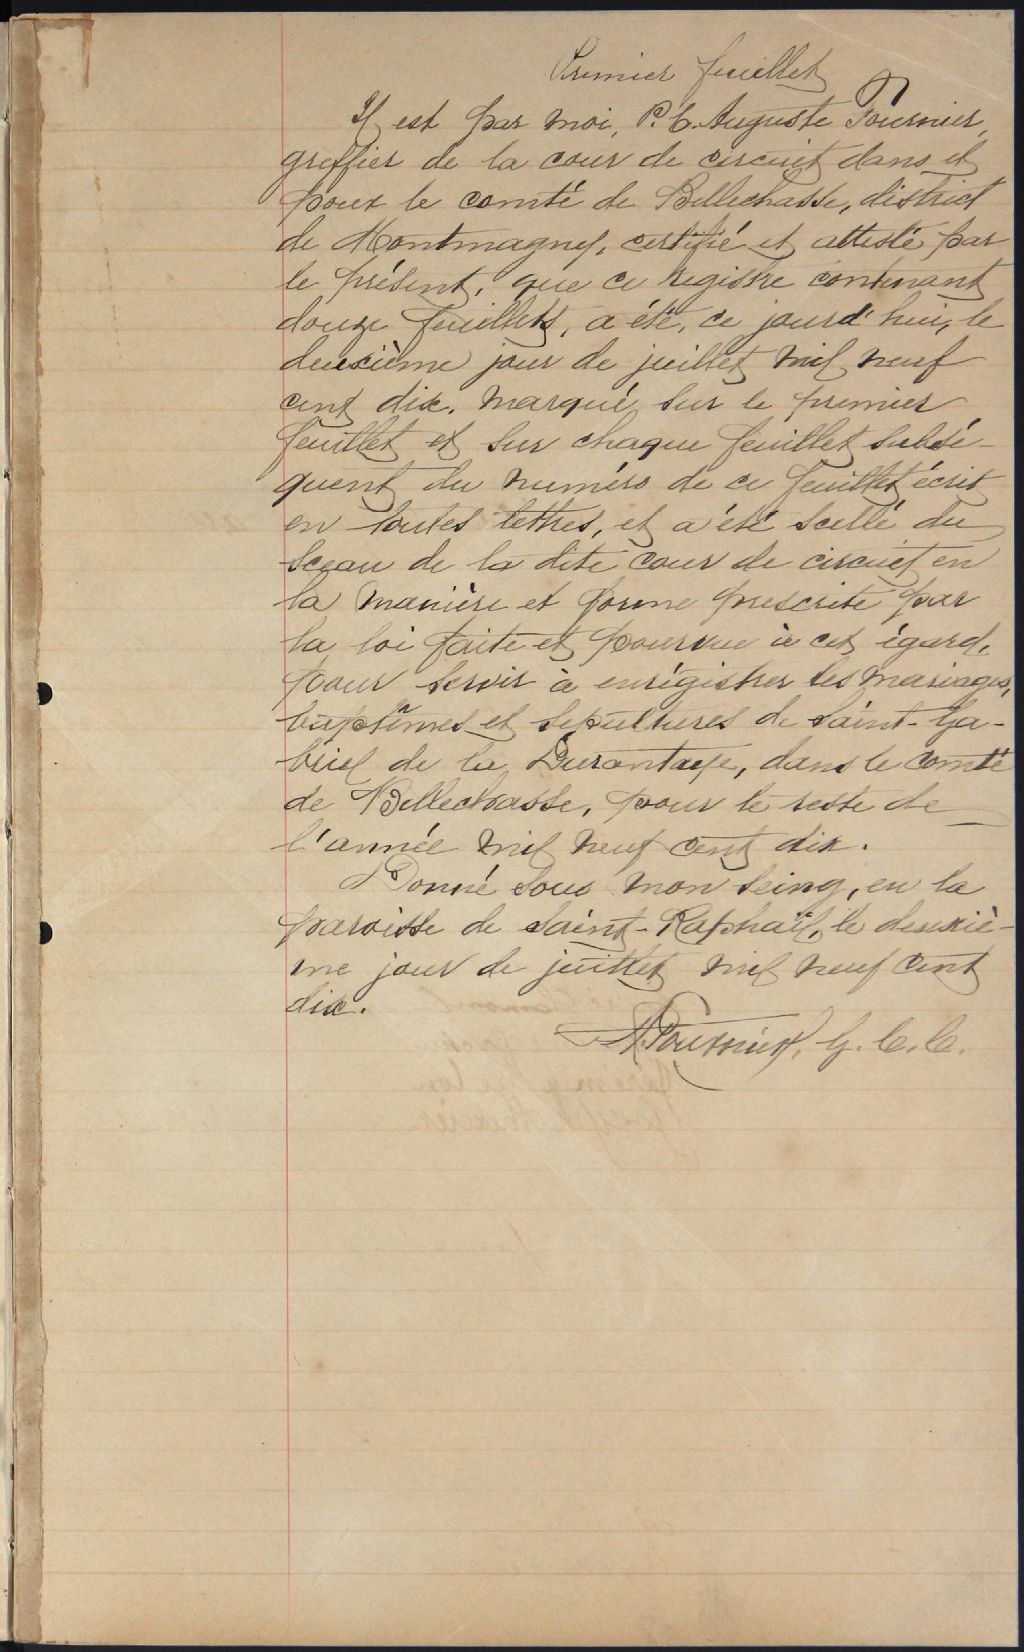 Premier feuillet
Il est par moi, P. C. Auguste Fournier,
greffier de la cour de circuit dans et
pour le comté de Bellechasse, district
de Montmagny, certifié et attesté par
le présent, que ce registre contenant
douze feuillets, a été, ce jourd'hui, le
deuxième jour de juillet mil neuf
cent dix, marqué sur le premier
feuillet et sur chaque feuillet subsé-
quent du numéro de ce feuillet écrit
en toutes lettres, et a été scellé du
sceau de la dite cour de circuit en
la manière et forme prescrite par
la loi faite et pourvue à cet égard,
pour servir à enrégistrer les mariages,
baptêmes et sépultures de Saint-Ga-
briel de la Durantaye, dans le comté
de Bellechasse, pour le reste de
l'année mil neuf cent dix.
Donné sous mon seing, en la
paroisse de Saint-Raphaël, le deuxiè-
me jour de juillet mil neuf cent
dix.
AFournier, G. C. C.